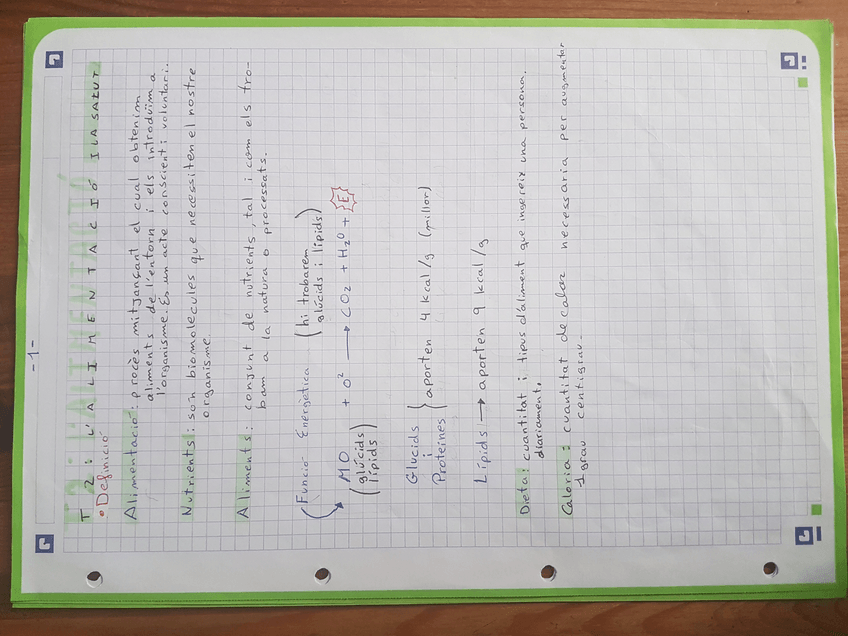 -1-
T2: L'ALIMENTACIÓ I LA SALUT
• Definició
Alimentació: procès mitjançant el cual obtenim
aliments de l'entorn i els introduïm a
l'organisme. És un acte conscient i voluntari.
Nutrients: són biomolecules que necessiten el nostre
organisme.
Aliments: conjunt de nutrients, tal i com els tro-
bam a la natura o processats.
Funció Energètica (hi trobarem
glúcids i lípids)
MO + O² → CO₂ + H₂O + E
(glúcids
lípids)
Glucids
i } aporten 4 kcal/g (millor)
Proteïnes
Lípids → aporten 9 kcal/g
Dieta: cuantitat i tipus d'aliment que ingereix una persona.
diariament.
Caloria: cuantitat de calor necessaria per augmentar
1 grau centigrau.